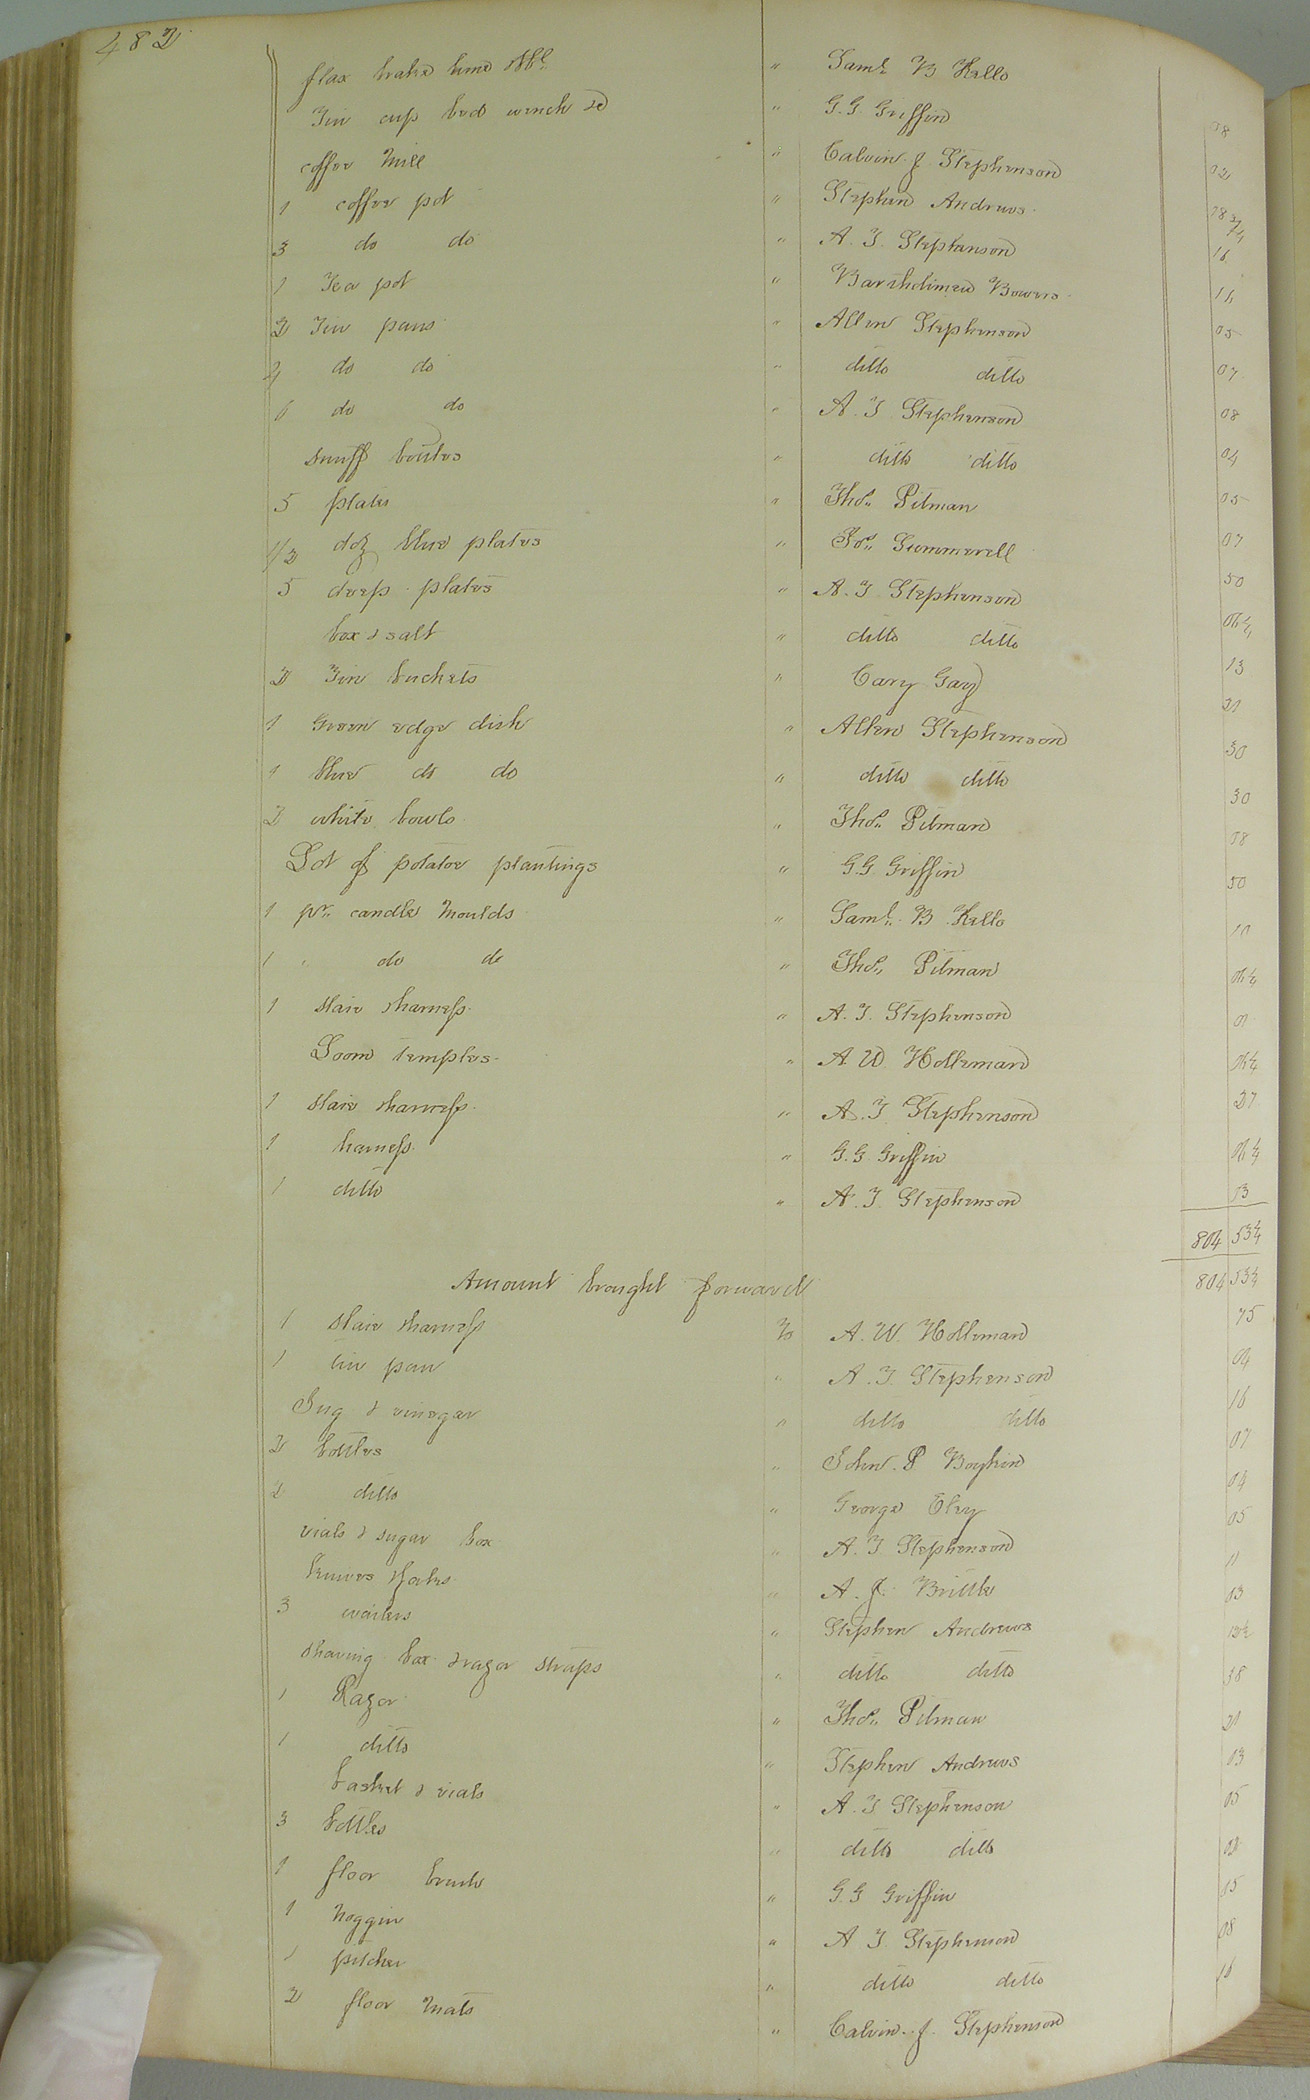 482
flax brake lime &bl " Saml B Kello
Tin cup bed winch &c " G. G Griffin 08
coffee Mill " Calvin J Stephenson 02
1 coffee pot " Stephen Andrews 78 3/4
3 do do " A. T. Stephenson 16
1 Tea pot " Barthelimew Bowers 14
2 Tin pans " Allen Stephenson 05
2 do do " ditto ditto 07
6 do do " A. T Stephenson 08
snuff bottles " ditto ditto 04
5 plates " Thos. Pitman 05
1/2 doz blue plates " Jos. Summerell 07
5 deep plates " A. T Stephenson 50
box & salt " ditto ditto 06 1/4
2 Tin buckets " Cary Gay 13
1 Green edge dish " Allen Stephenson 21
1 blue do do " ditto ditto 30
2 white bowls " Thos. Pitman 30
Lot of potatoe plantings " G. G. Griffin 18
1 pr. candle Moulds " Saml. B Kello 50
1 " do do " Thos. Pitman 10
1 slaie & harness " A. T. Stephenson 06 1/4
Loom temples " A W Holleman 01
1 slaie & harness " A. T Stephenson 06 1/4
1 harness " G. G. Griffin 27
1 ditto " A. T. Stephenson 06 1/4
13
804 53 1/4
Amount brought forward 804 53 1/4
1 slaie & harness To A. W. Holleman 75
1 tin pan " A. T. Stephenson 04
Jug & vinegar " ditto ditto 16
2 bottles " John. P Boykin 07
2 ditto " George Eley 04
vials & sugar box " A. T Stephenson 05
knives & forks " A. J. Brittle 11
3 waiters " Stephen Andrews 03
shaving box & razor straps " ditto ditto 12 1/2
1 Razor " Thos. Pitman 38
1 ditto " Stephen Andrews 21
basket & vials " A. T Stephenson 03
3 bottles " ditto ditto 05
1 floor brush " G. G Griffin 02
1 Noggin " A T Stephenson 15
1 pitcher " ditto ditto 08
2 floor Mats " Calvin. J. Stephenson 16